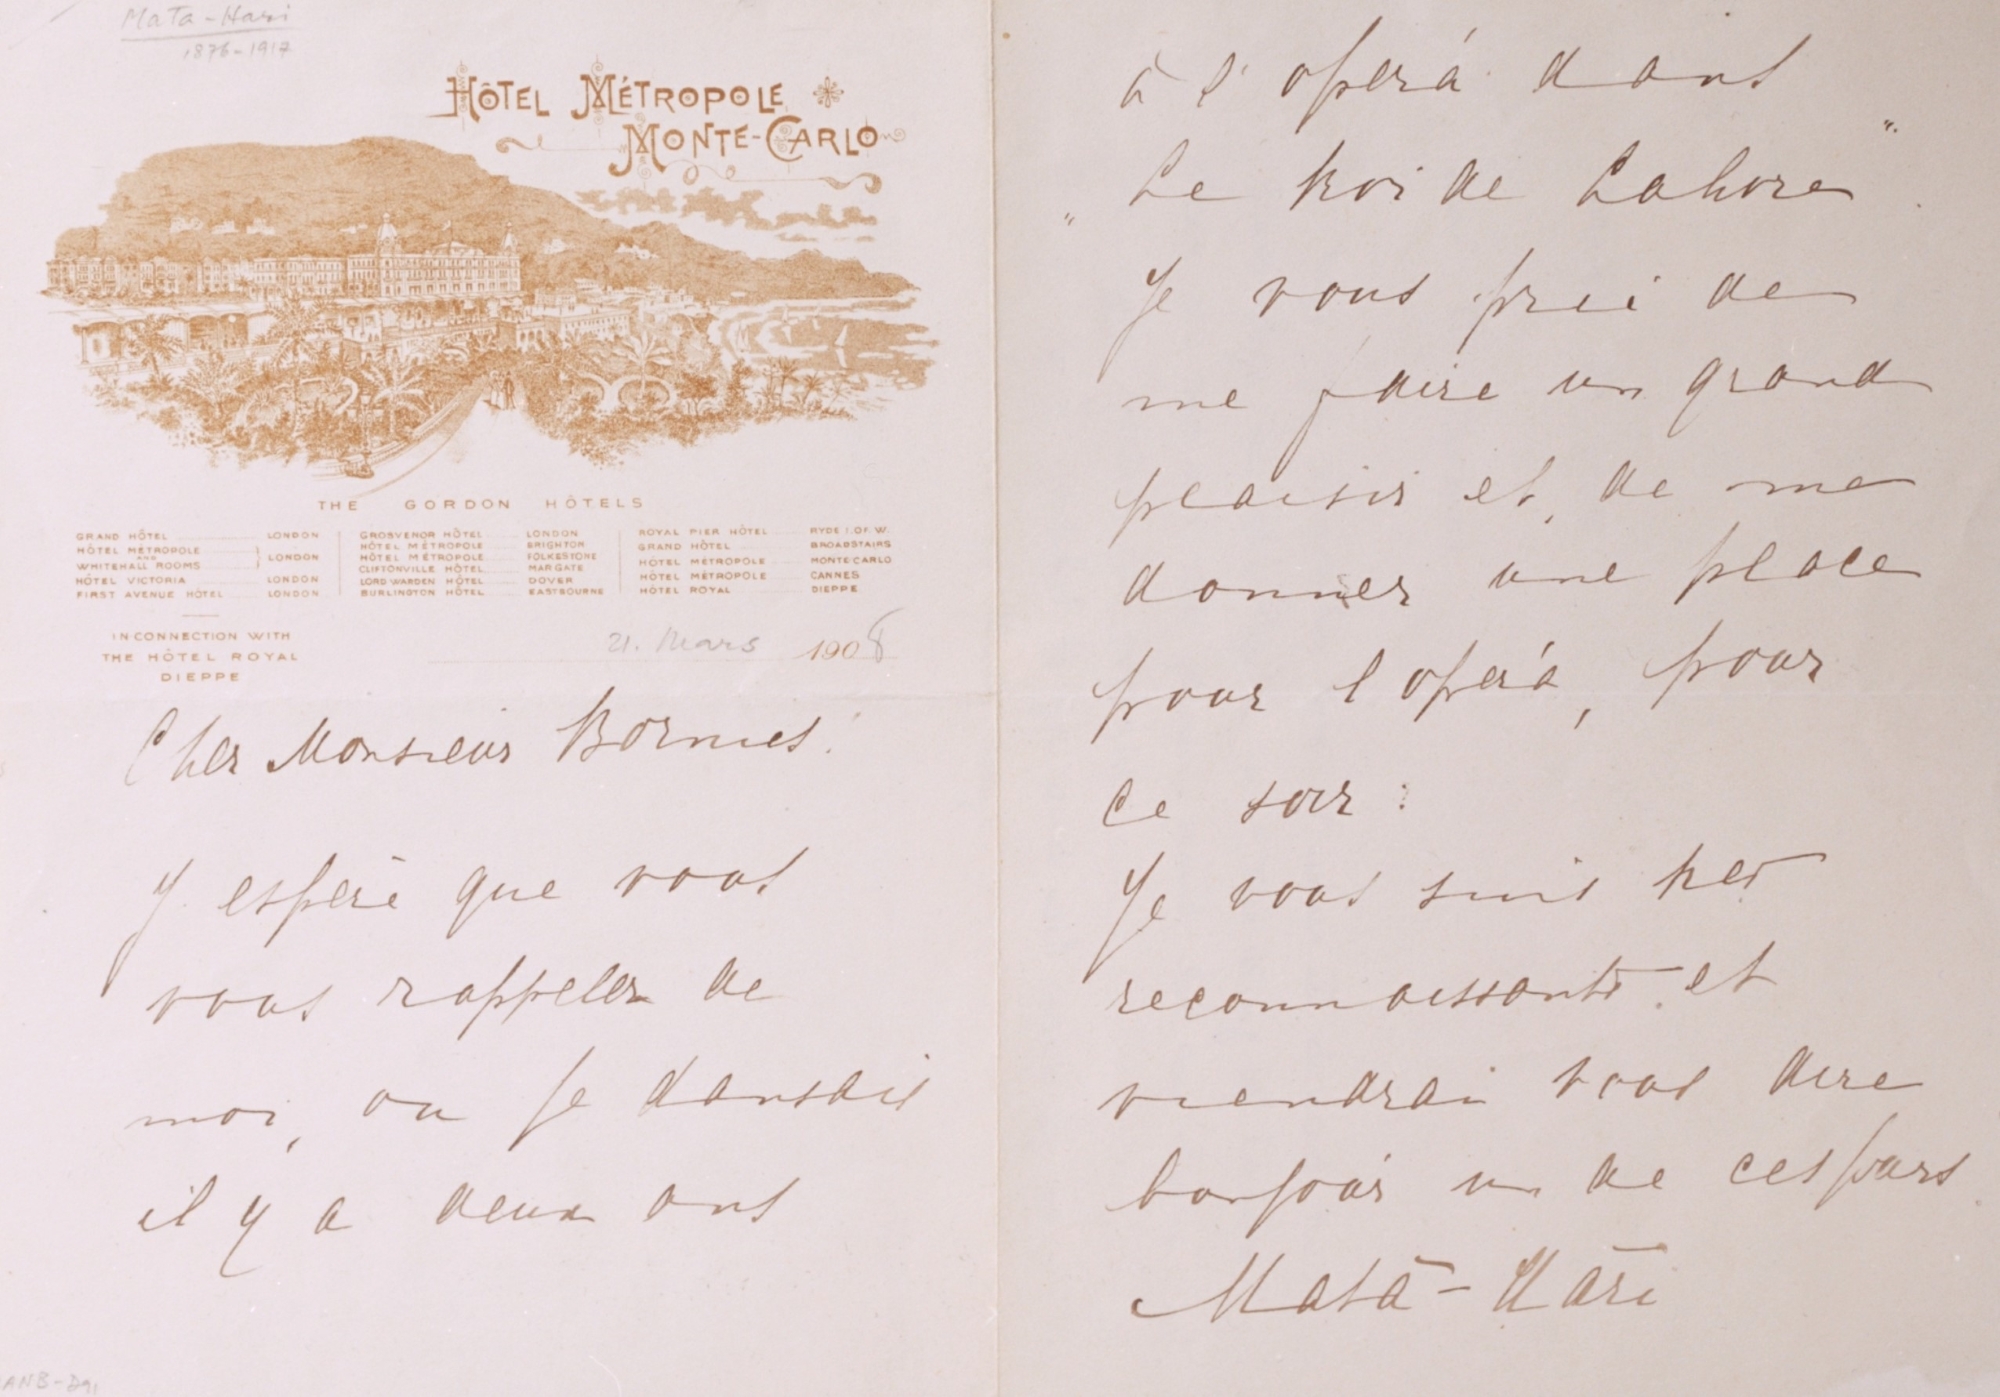 Mata-Hari
1876-1917
HÔTEL MÉTROPOLE
MONTE-CARLO
THE GORDON HÔTELS
GRAND HÔTEL LONDON
HÔTEL MÉTROPOLE AND WHITEHALL ROOMS LONDON
HÔTEL VICTORIA LONDON
FIRST AVENUE HÔTEL LONDON
GROSVENOR HÔTEL LONDON
HÔTEL MÉTROPOLE BRIGHTON
HÔTEL MÉTROPOLE FOLKESTONE
CLIFTONVILLE HÔTEL MARGATE
LORD WARDEN HÔTEL DOVER
BURLINGTON HÔTEL EASTBOURNE
ROYAL PIER HÔTEL RYDE I. OF W.
GRAND HÔTEL BROADSTAIRS
HÔTEL MÉTROPOLE MONTE CARLO
HÔTEL MÉTROPOLE CANNES
HÔTEL ROYAL DIEPPE
IN CONNECTION WITH
THE HÔTEL ROYAL
DIEPPE
21. Mars 1908
Cher Monsieur
J espère que vous
vous rappeler de
moi, ou je dansais
il y a deux ans
à l'opera dans
"Le Roi de Lahore".
Je vous prei de
me faire un grand
plaisir et de me
donner une place
pour l opéra, pour
ce soir.
Je vous suis tres
reconnaissante et
viendrai vous dire
bonjour un de ces jours
Mata-Hari
ANB-D91